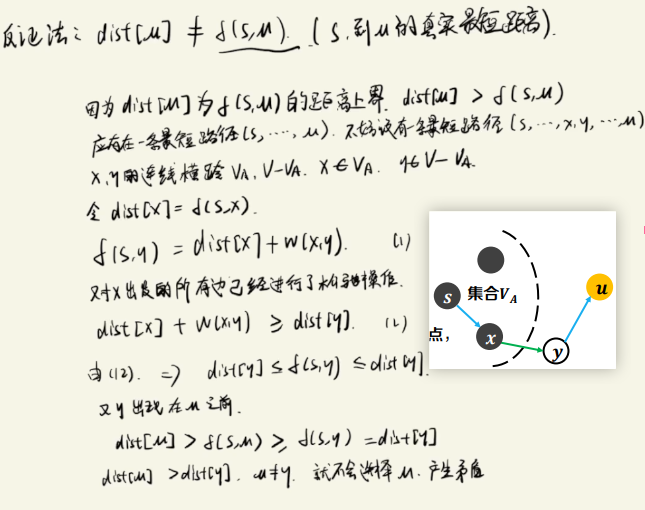 反证法: dist[u] ≠ δ(s,u). (s到u的真实最短距离).
因为dist[u]为δ(s,u)的距离上界. dist[u] > δ(s,u)
应存在一条最短路径(s,…,u). 不妨设有一条最短路径(s,…,x,y,…u)
x,y的连线横跨 V_A, V-V_A. x∈V_A. y∈V-V_A.
令 dist[x] = δ(s,x).
δ(s,y) = dist[x] + w(x,y). (1)
对x出发的所有边已经进行了松弛操作.
dist[x] + w(x,y) ≥ dist[y]. (2)
由(1)(2). ⇒ dist[y] ≤ δ(s,y) ≤ dist[y].
又y出现在u之前.
dist[u] > δ(s,u) ≥ δ(s,y) = dist[y]
dist[u] > dist[y]. u≠y. 就不会选择u. 产生矛盾
s
集合V_A
u
点，
x
y